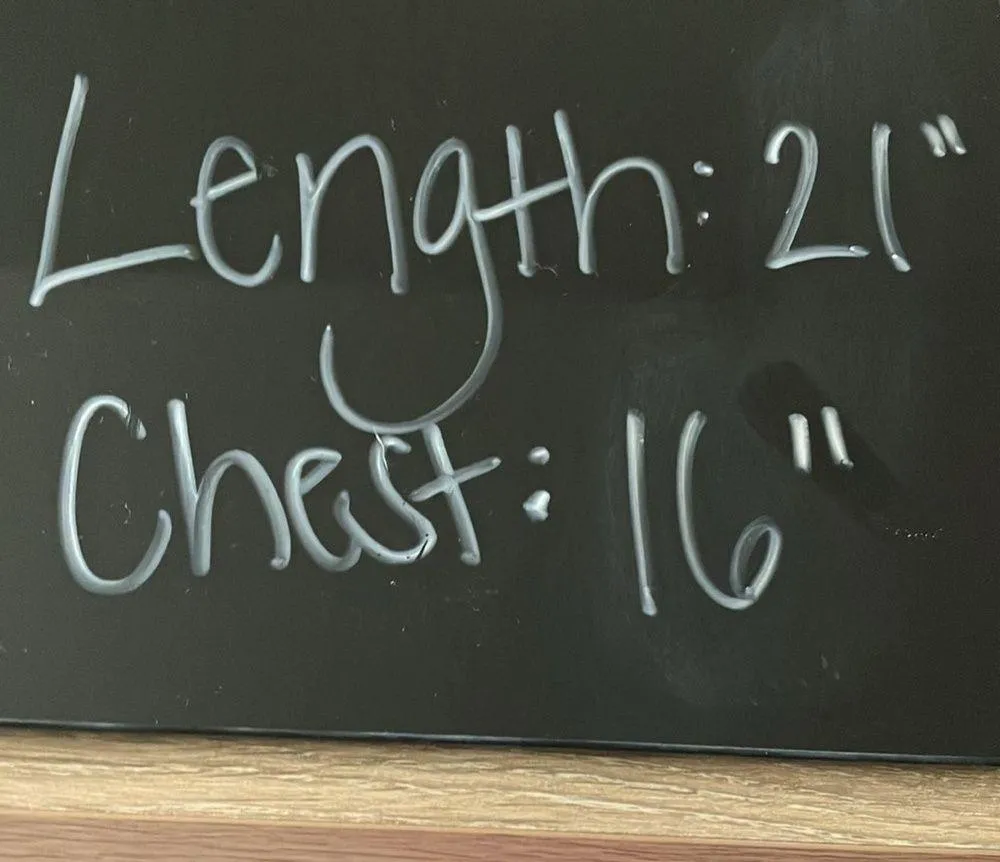 Length: 21"
Chest: 16"